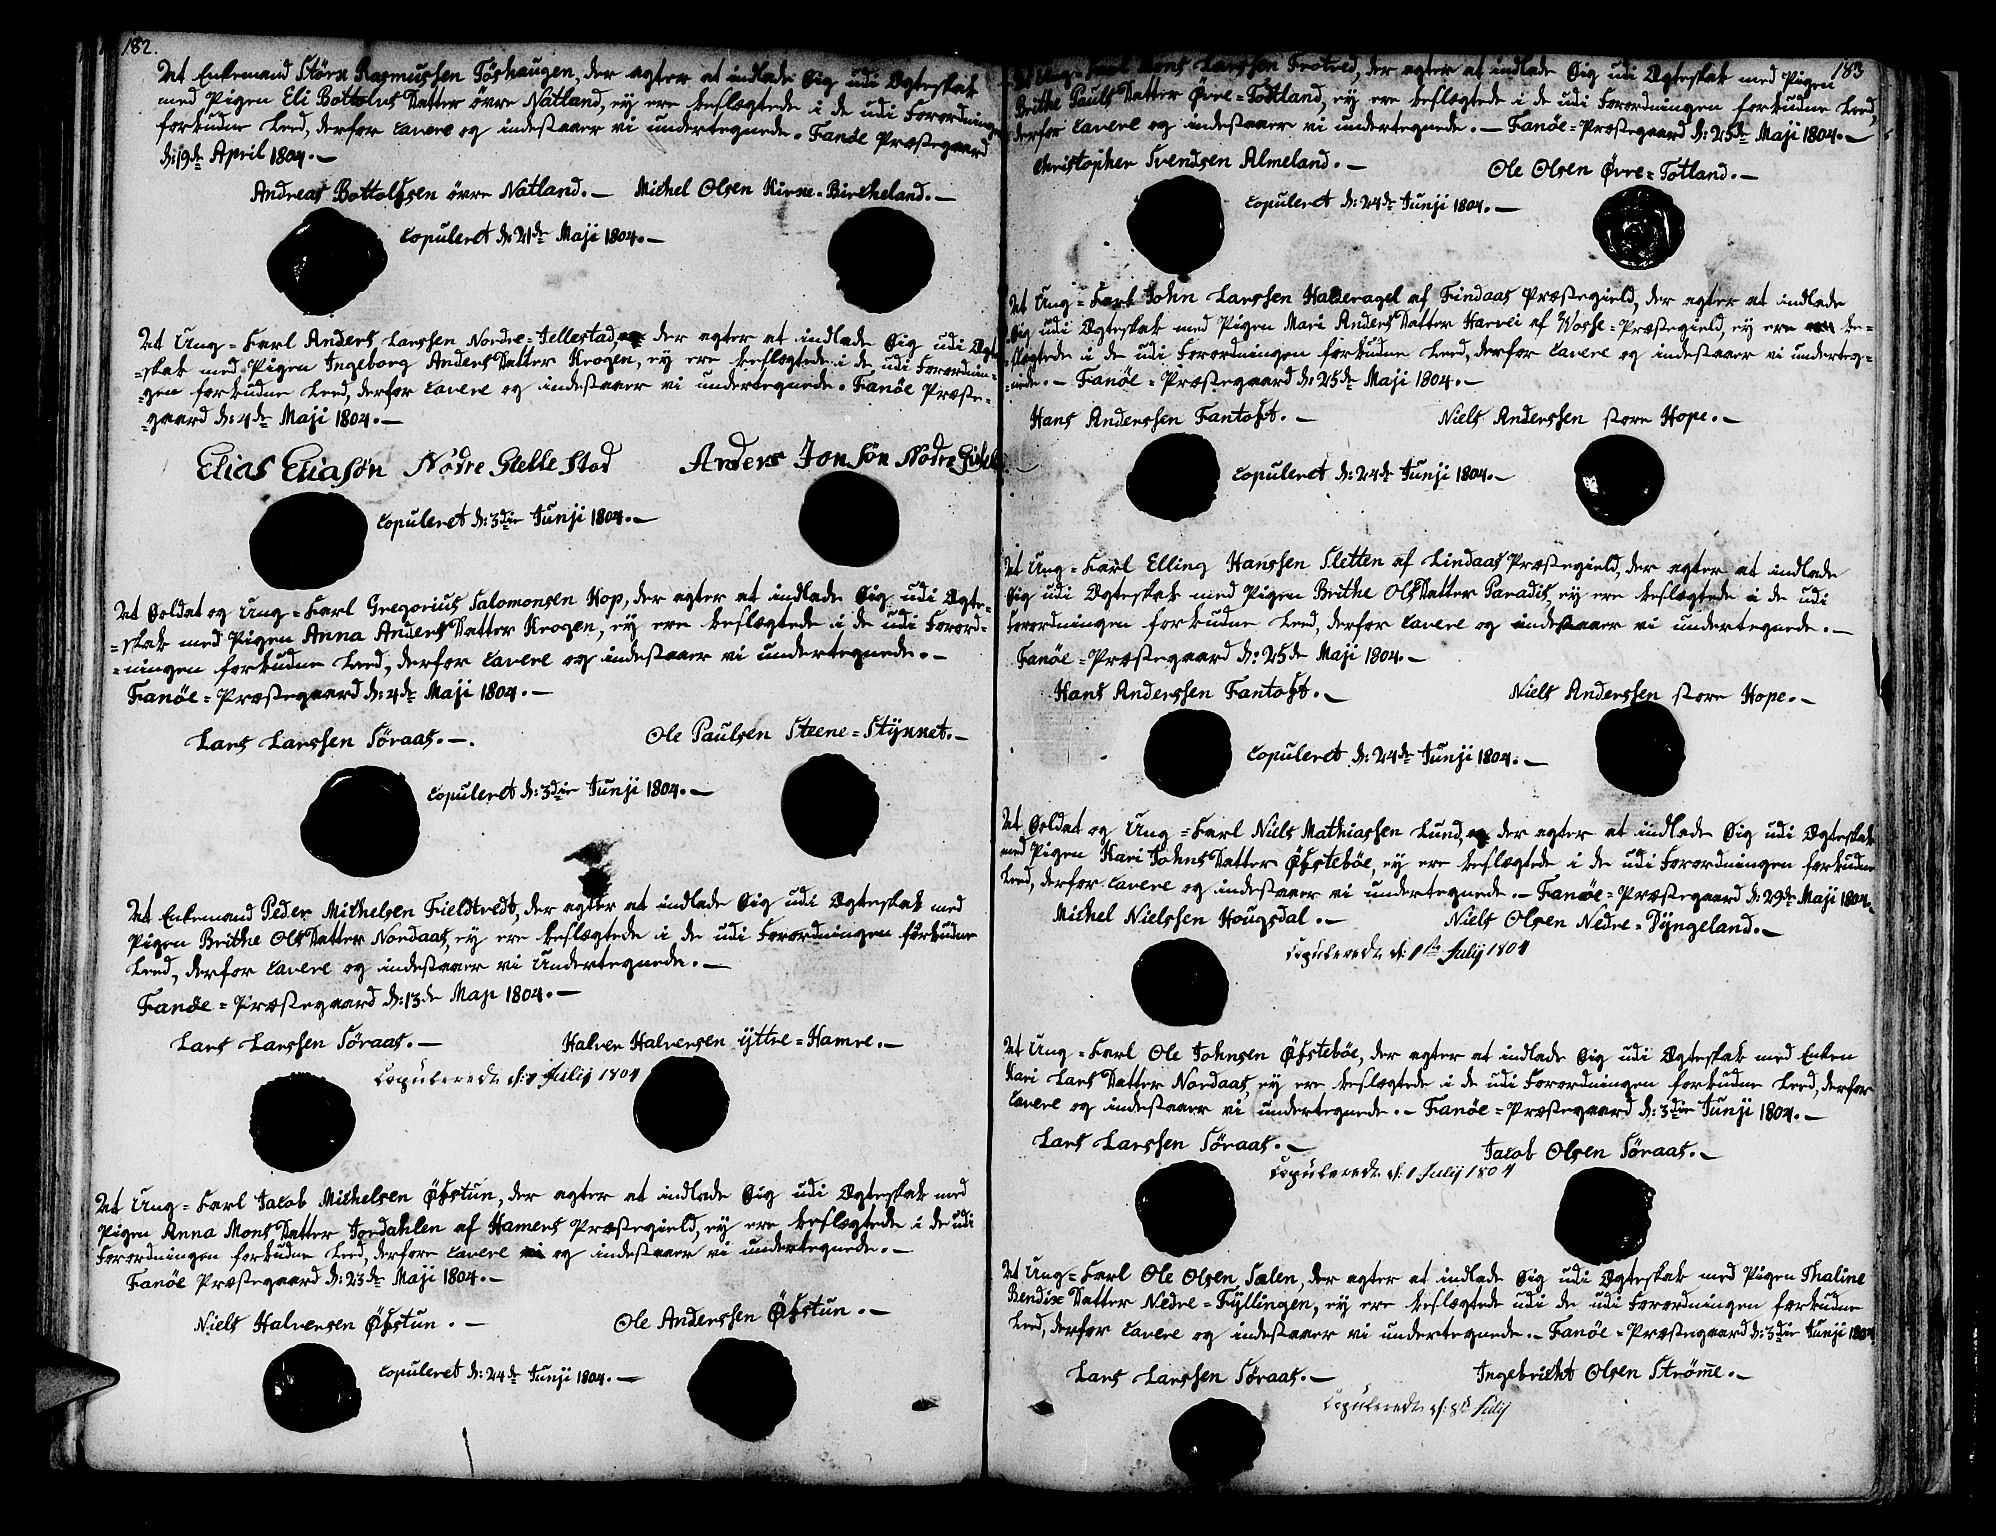 182.
At Enkemand Størk Rasmussen Tøshaugen, der agter at indlade Sig udi Ægteskab
med Pigen Eli BottolvsDatter øvre Natland, ey ere beslægtede i de udi Forordningen
forbudne Leed, derfor cavere og indestaaer vi undertegnede. Fanøe Præstegaard
d: 19de April 1804.—
Andreas Bottolfsen øvre Natland.— Michel Olsen Kirke-Bircheland.—
Copuleret d: 21de Maji 1804.—
At Ung-Karl Anders Larssen Nordre-Jellestad, der agter at indlade Sig udi Ægte-
=skab med Pigen Ingeborg AndersDatter Krogen, ey ere beslægtede i de udi Forordnin-
=gen forbudne Leed, derfor cavere og indestaaer vi undertegnede. Fanøe Præste-
=gaard d: 4de Maji 1804.—
Elias Eliasøn Nodre Gielle Stad Anders Jonsøn Nodre
Copuleret d: 3die Junji 1804.—
At Soldat og Ung=Karl Gregorius Salomonsen Hop, der agter at indlade Sig udi Ægte-
=skab med Pigen Anna AndersDatter Krogen, ey ere beslægtede i de udi Forord-
=ningen forbudne Leed, derfor cavere og indestaaer vi undertegnede.—
Fanøe=Præstegaard d: 4de Maji 1804.—
Lars Larssen Søraas.—. Ole Paulsen Steene=Stynnet.—
Copuleret d: 3die Junji 1804.—
At Enkemand Peder Michelsen Fieldtvedt, der agter at indlade Sig udi Ægteskab med
Pigen Brithe OlsDatter Nordaas, ey ere beslægtede i de udi Forordningen forbudne
Leed, derfor cavere og indestaaer vi Undertegnede.—
Fanøe=Præstegaard d: 13de Maji 1804.—
Lars Larssen Søraas.— Halver Halversen ÿttre=Hamre.—
Copuleredt d: 1 Julij 1804
At Ung=Karl Jacob Michelsen Øfstun, der agter at indlade Sig udi Ægteskab med
Pigen Anna MonsDatter Jordahlen af Hamens Præstegield, ey ere beslægtede i de udi
Forordningen forbudne Leed, derfore cavere og indestaaer vi undertegnede.—
Fanøe Præstegaard d: 23de Maji 1804.—
Niels Halversen Øfstun.— Ole Anderssen Øfstun.—
Copuleret d: 24de Junji 1804.—
183
At Ung=Karl Mons Larssen Frotved, der agter at indlade Sig udi Ægteskab med Pigen
Brithe PaulsDatter Øvre=Tottland, ey ere beslægtede i de udi Forordningen forbudne Leed,
derfor cavere og indestaaer vi undertegnede.— Fanøe=Præstegaard d: 25de Maji 1804.—
Christopher Svendsen Almeland.— Ole Olsen Øvre=Totland.—
Copuleret d: 24de Junji 1804.—
At Ung=Karl John Larssen Halderagel af Findaas Præstegield, der agter at indlade
Sig udi Ægteskab med Pigen Mari AndersDatter Harvei af Vosse=Præstegield, ey ere be=
=slægtede i de udi Forordningen forbudne Leed, derfor cavere og indestaaer vi underteg=
=nede.— Fanøe=Præstegaard d: 25de Maji 1804.—
Hans Anderssen Fantoft.— Niels Anderssen store Hope.—
Copuleret d: 24de Junji 1804.—
At Ung=Karl Elling Hanssen Sletten af Lindaas Præstegield, der agter at indlade
Sig udi Ægteskab med Pigen Brithe OlsDatter Paradis, ey ere beslægtede i de udi
Forordningen forbudne Leed, derfor cavere og indestaaer vi undertegnede.—
Fanøe=Præstegaard d: 25de Maji 1804.—
Hans Anderssen Fantoft.— Niels Anderssen store Hope.—
Copuleret d: 24de Junji 1804.—
At Soldat og Ung=Karl Niels Mathiassen Lund, der agter at indlade Sig udi Ægteskab
med Pigen Kari JohnsDatter Øfstebøe, ey ere beslægtede i de udi Forordningen forbudne
Leed, derfor cavere og indestaaer vi undertegnede.— Fanøe=Præstegaard d: 29de Maji 1804.
Michel Nielssen Hougsdal.— Niels Olsen Nedre=Dÿngeland.—
Copuleredt d: 1ste Julij 1804
At Ung=Karl Ole Johnsen Øfstebøe, der agter at indlade Sig udi Ægteskab med Enken
Kari LarsDatter Nordaas, ey ere beslægtede i de udi Forordningen forbudne Leed, derfor
cavere og indestaaer vi undertegnede.— Fanøe=Præstegaard d: 3die Junji 1804.—
Lars Larssen Søraas.— Jacob Olsen Søraas.—
Copuleredt d: 1 Julij 1804
At Ung=Karl Ole Olsen Sælen, der agter at indlade Sig udi Ægteskab med Pigen Thaline
BendixDatter Nedre=Fÿllingen, ey ere beslægtede udi de udi Forordningen forbudne
Leed, derfor cavere og indestaaer vi undertegnede.— Fanøe=Præstegaard d: 3die Junji 1804
Lars Larssen Søraas.— Ingebricht Olsen Strøme.—
Copuleredt d: 8de Julij